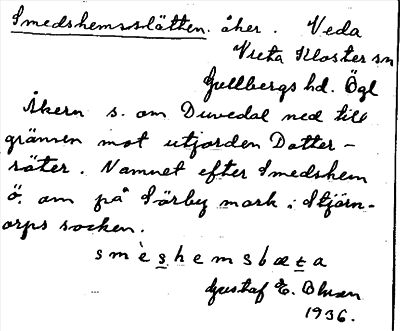 Smedshemsslätten. åker. Veda
Vreta Kloster sn
Gullbergs hd. Ögl
Åkern s. om Duvedal ned till
gränsen mot utjorden Dotter-
röter. Namnet efter Smedshem
ö. om på Sörby mark i Stjärn-
orps socken.
smèshemsbæta
Gustaf E.
1936.